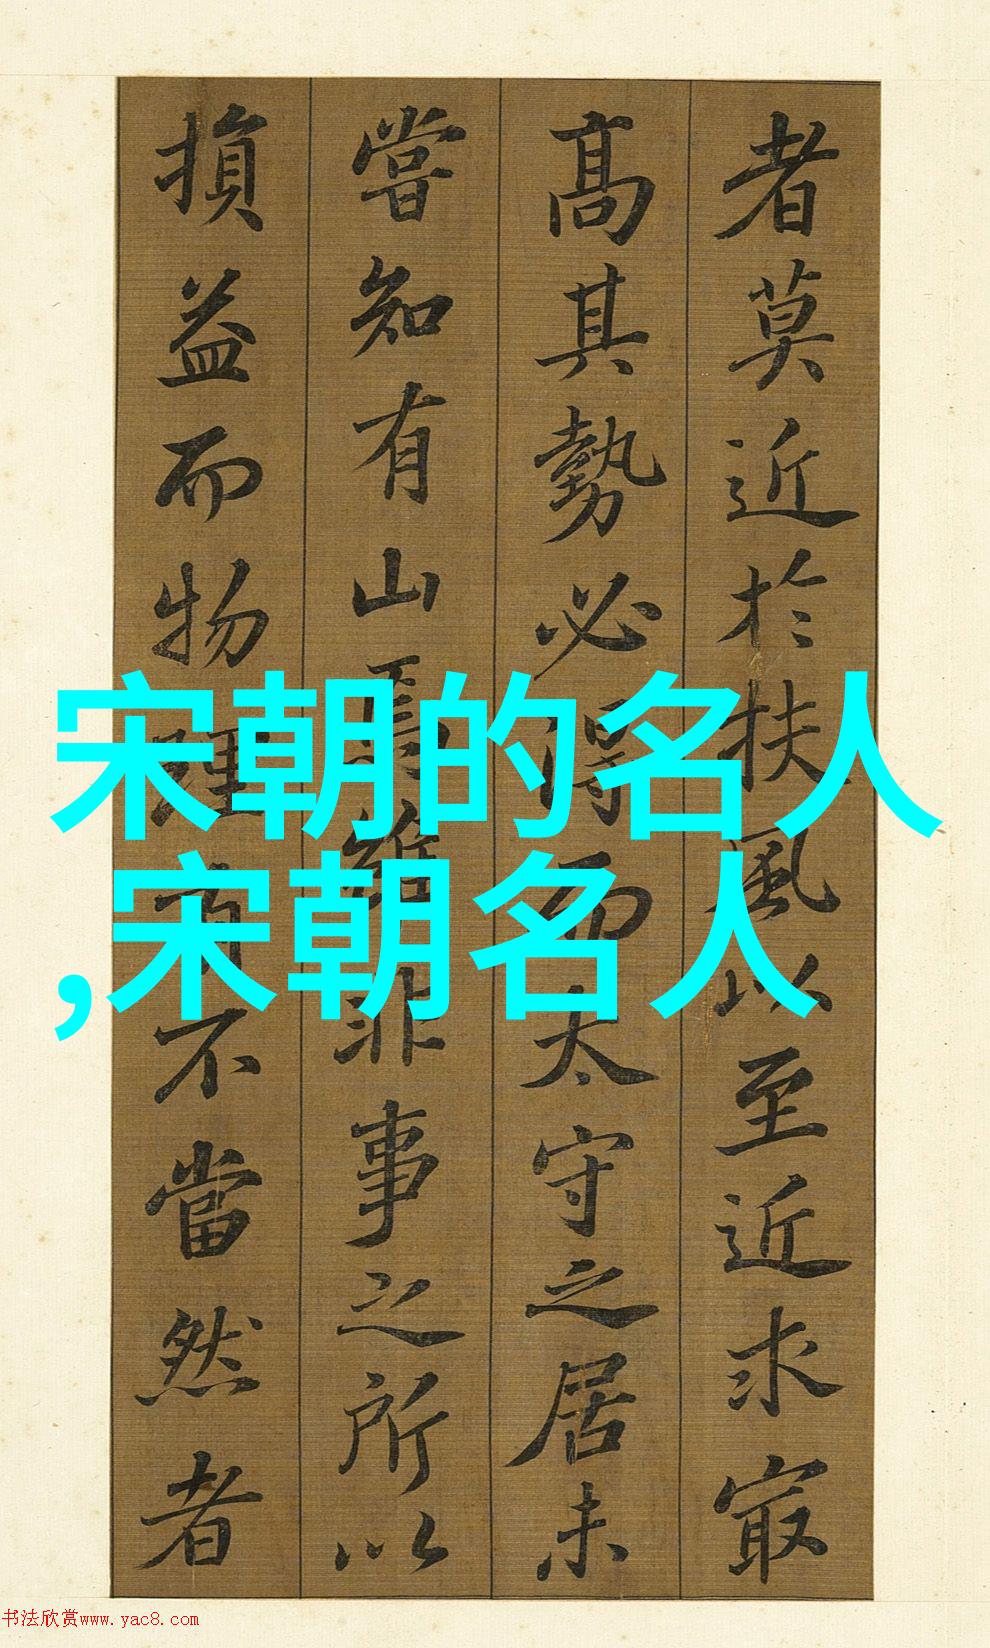 者莫近於扶風以至近求㝡
髙其勢必得而太守之居未
嘗知有山焉雖非事之所以
損益而物理有不當然者
宋朝的名人
,宋朝名人
书法欣赏www.yac8.com